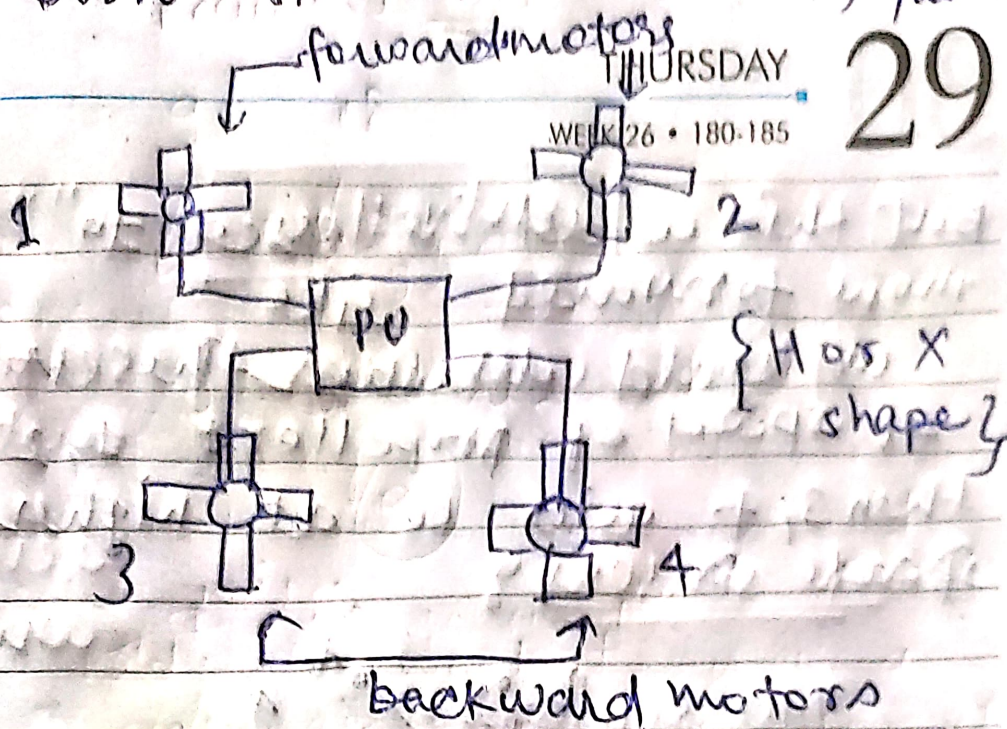 forward motors
THURSDAY 29
WEEK 26 • 180-185
1
2
PU
{H or X
shape}
3
4
backward motors